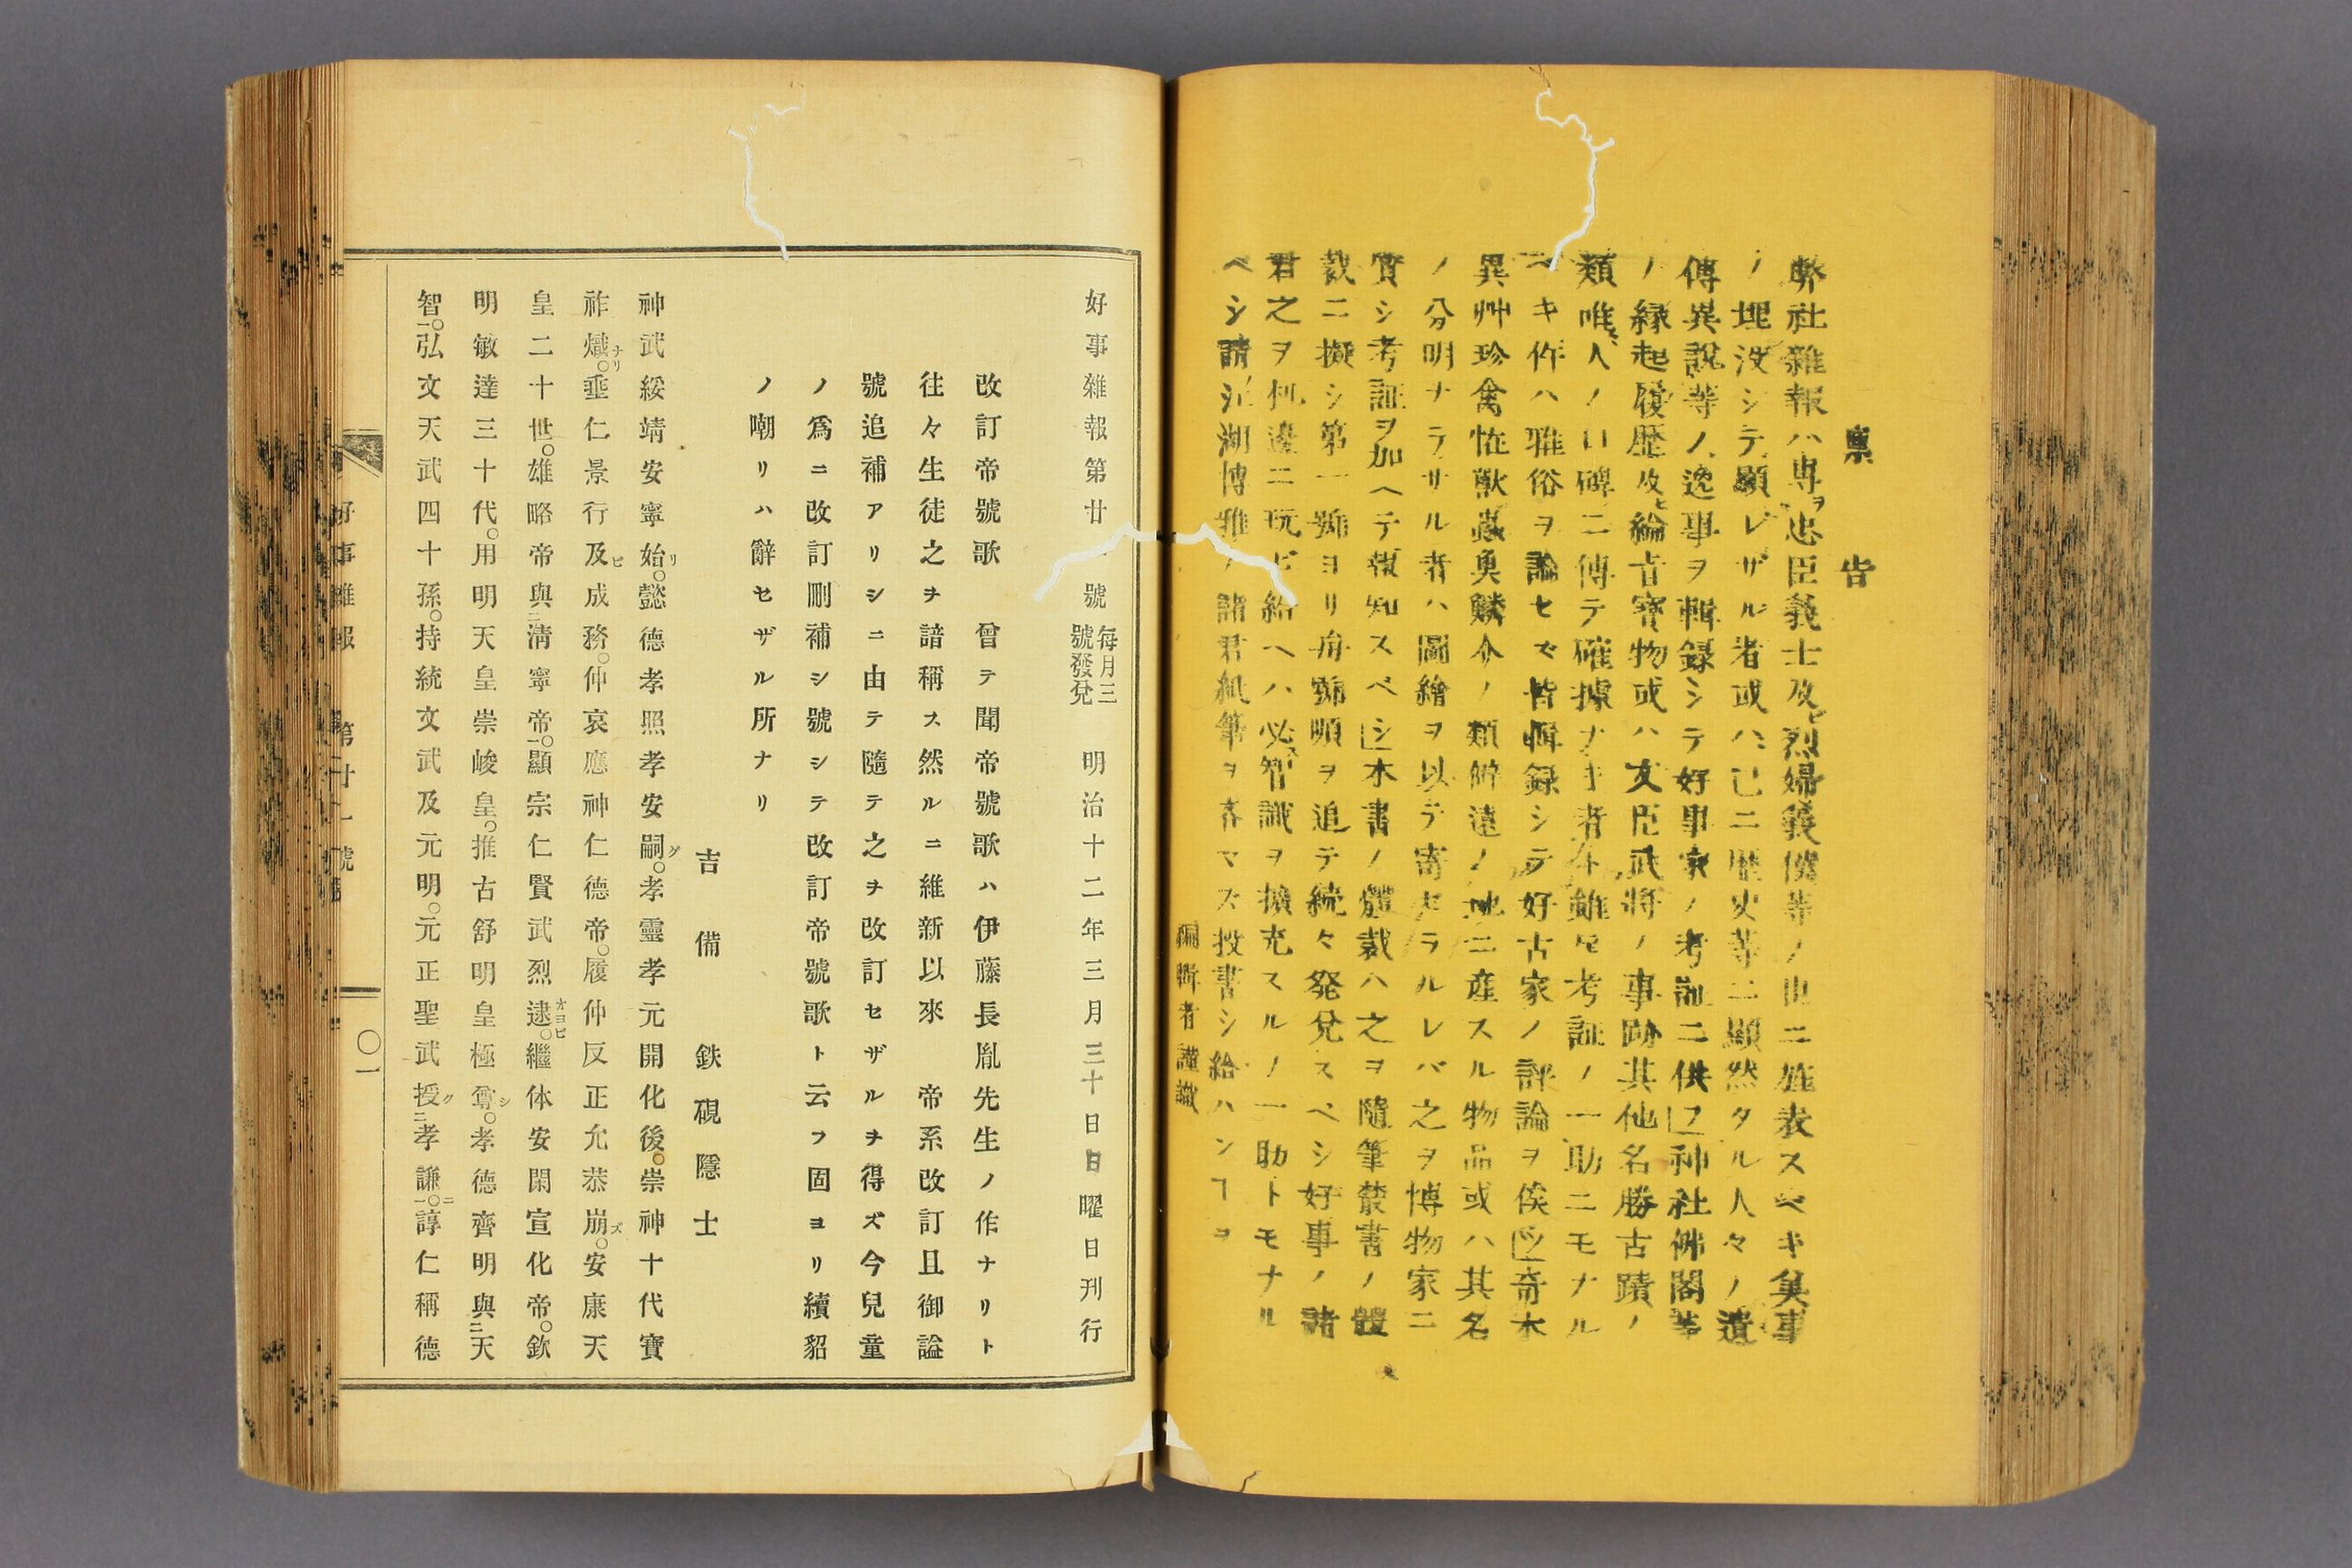 稟告
弊社雜報ハ専ヲ忠臣義士及ビ烈婦義僕等ノ世ニ旌表スベキ美事
ノ埋没シテ顯レザル者或ハ已ニ歴史等ニ顯然タル人々ノ遺
傳異説等ノ逸事ヲ輯録シテ好事家ノ考証ニ供フ」神社佛閣等
ノ縁起履歴及ヒ綸旨寳物或ハ文臣武将ノ事跡其他名勝古蹟ノ
類唯人ノ口碑ニ傳テ確據ナキ者ト雖モ考証ノ一助ニモナル
ベキ件ハ雅俗ヲ論セズ皆輯録シテ好古家ノ評論ヲ俟ツ」奇木
異艸珍禽恠獣蟲魚鱗介ノ類僻遠ノ地ニ産スル物品或ハ其名
ノ分明ナラサル者ハ圖繪ヲ以テ寄セラルレバ之ヲ博物家ニ
質シ考証ヲ加ヘテ報知スベシ」本書ノ體裁ハ之ヲ隨筆叢書ノ體
裁ニ擬シ第一號ヨリ毎號順ヲ追テ続々発兌スベシ好事ノ諸
君之ヲ机邊ニ玩ビ給ヘハ必智識ヲ擴充スルノ一助トモナル
ベシ請江湖博雅ノ諸君紙筆ヲ吝マズ投書シ給ハンヿヲ
編輯者謹識
好事雜報第廿 號 每月三號發兌 明治十二年三月三十日日曜日刊行
改訂帝號歌 曾テ聞帝號歌ハ伊藤長胤先生ノ作ナリト
往々生徒之ヲ諳稱ス然ルニ維新以來 帝系改訂且御謚
號追補アリシニ由テ隨テ之ヲ改訂セザルヲ得ズ今兒童
ノ爲ニ改訂刪補シ號シテ改訂帝號歌ト云フ固ヨリ續貂
ノ嘲リハ辭セザル所ナリ
吉備 鉄硯隱士
神武綏靖安寧始リ。懿德孝照孝安嗣グ。孝靈孝元開化後。崇神十代寶
祚熾ナリ。垂仁景行及ビ成務。仲哀應神仁德帝。履仲反正允恭崩ズ。安康天
皇二十世。雄略帝與ニ淸寧帝一。顯宗仁賢武烈逮オヨビ。繼体安閑宣化帝。欽
明敏達三十代。用明天皇崇峻皇。推古舒明皇極尊シ。孝德齊明與ニ天
智一。弘文天武四十孫。持統文武及元明。元正聖武授ク二孝謙ニ一。諄仁稱德
好事雜報 第廿一號 〇一